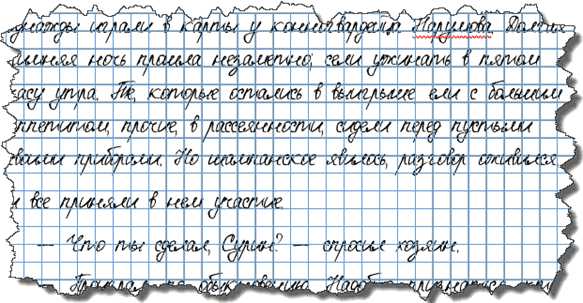 днажды играли в карты у конногвардейца Нарумова. Долгая
имняя ночь прошла незаметно; сели ужинать в пятом
асу утра. Те, которые остались в выигрыше ели с большим
ппетитом, прочие, в рассеянности, сидели перед пустыми
воими приборами. Но шампанское явилось, разговор оживился
и все приняли в нем участие.
— Что ты сделал, Сурин? — спросил хозяин.
Проиграл, по обыкновению. Надобно признаться, что